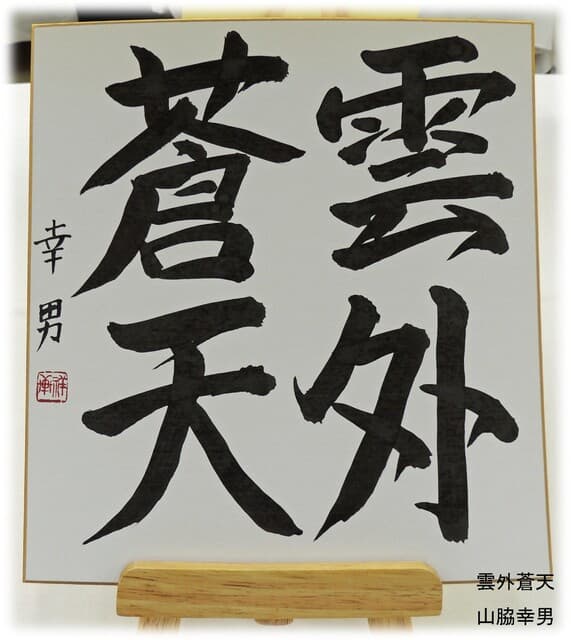 雲外
蒼天
幸男
雲外蒼天
山脇幸男